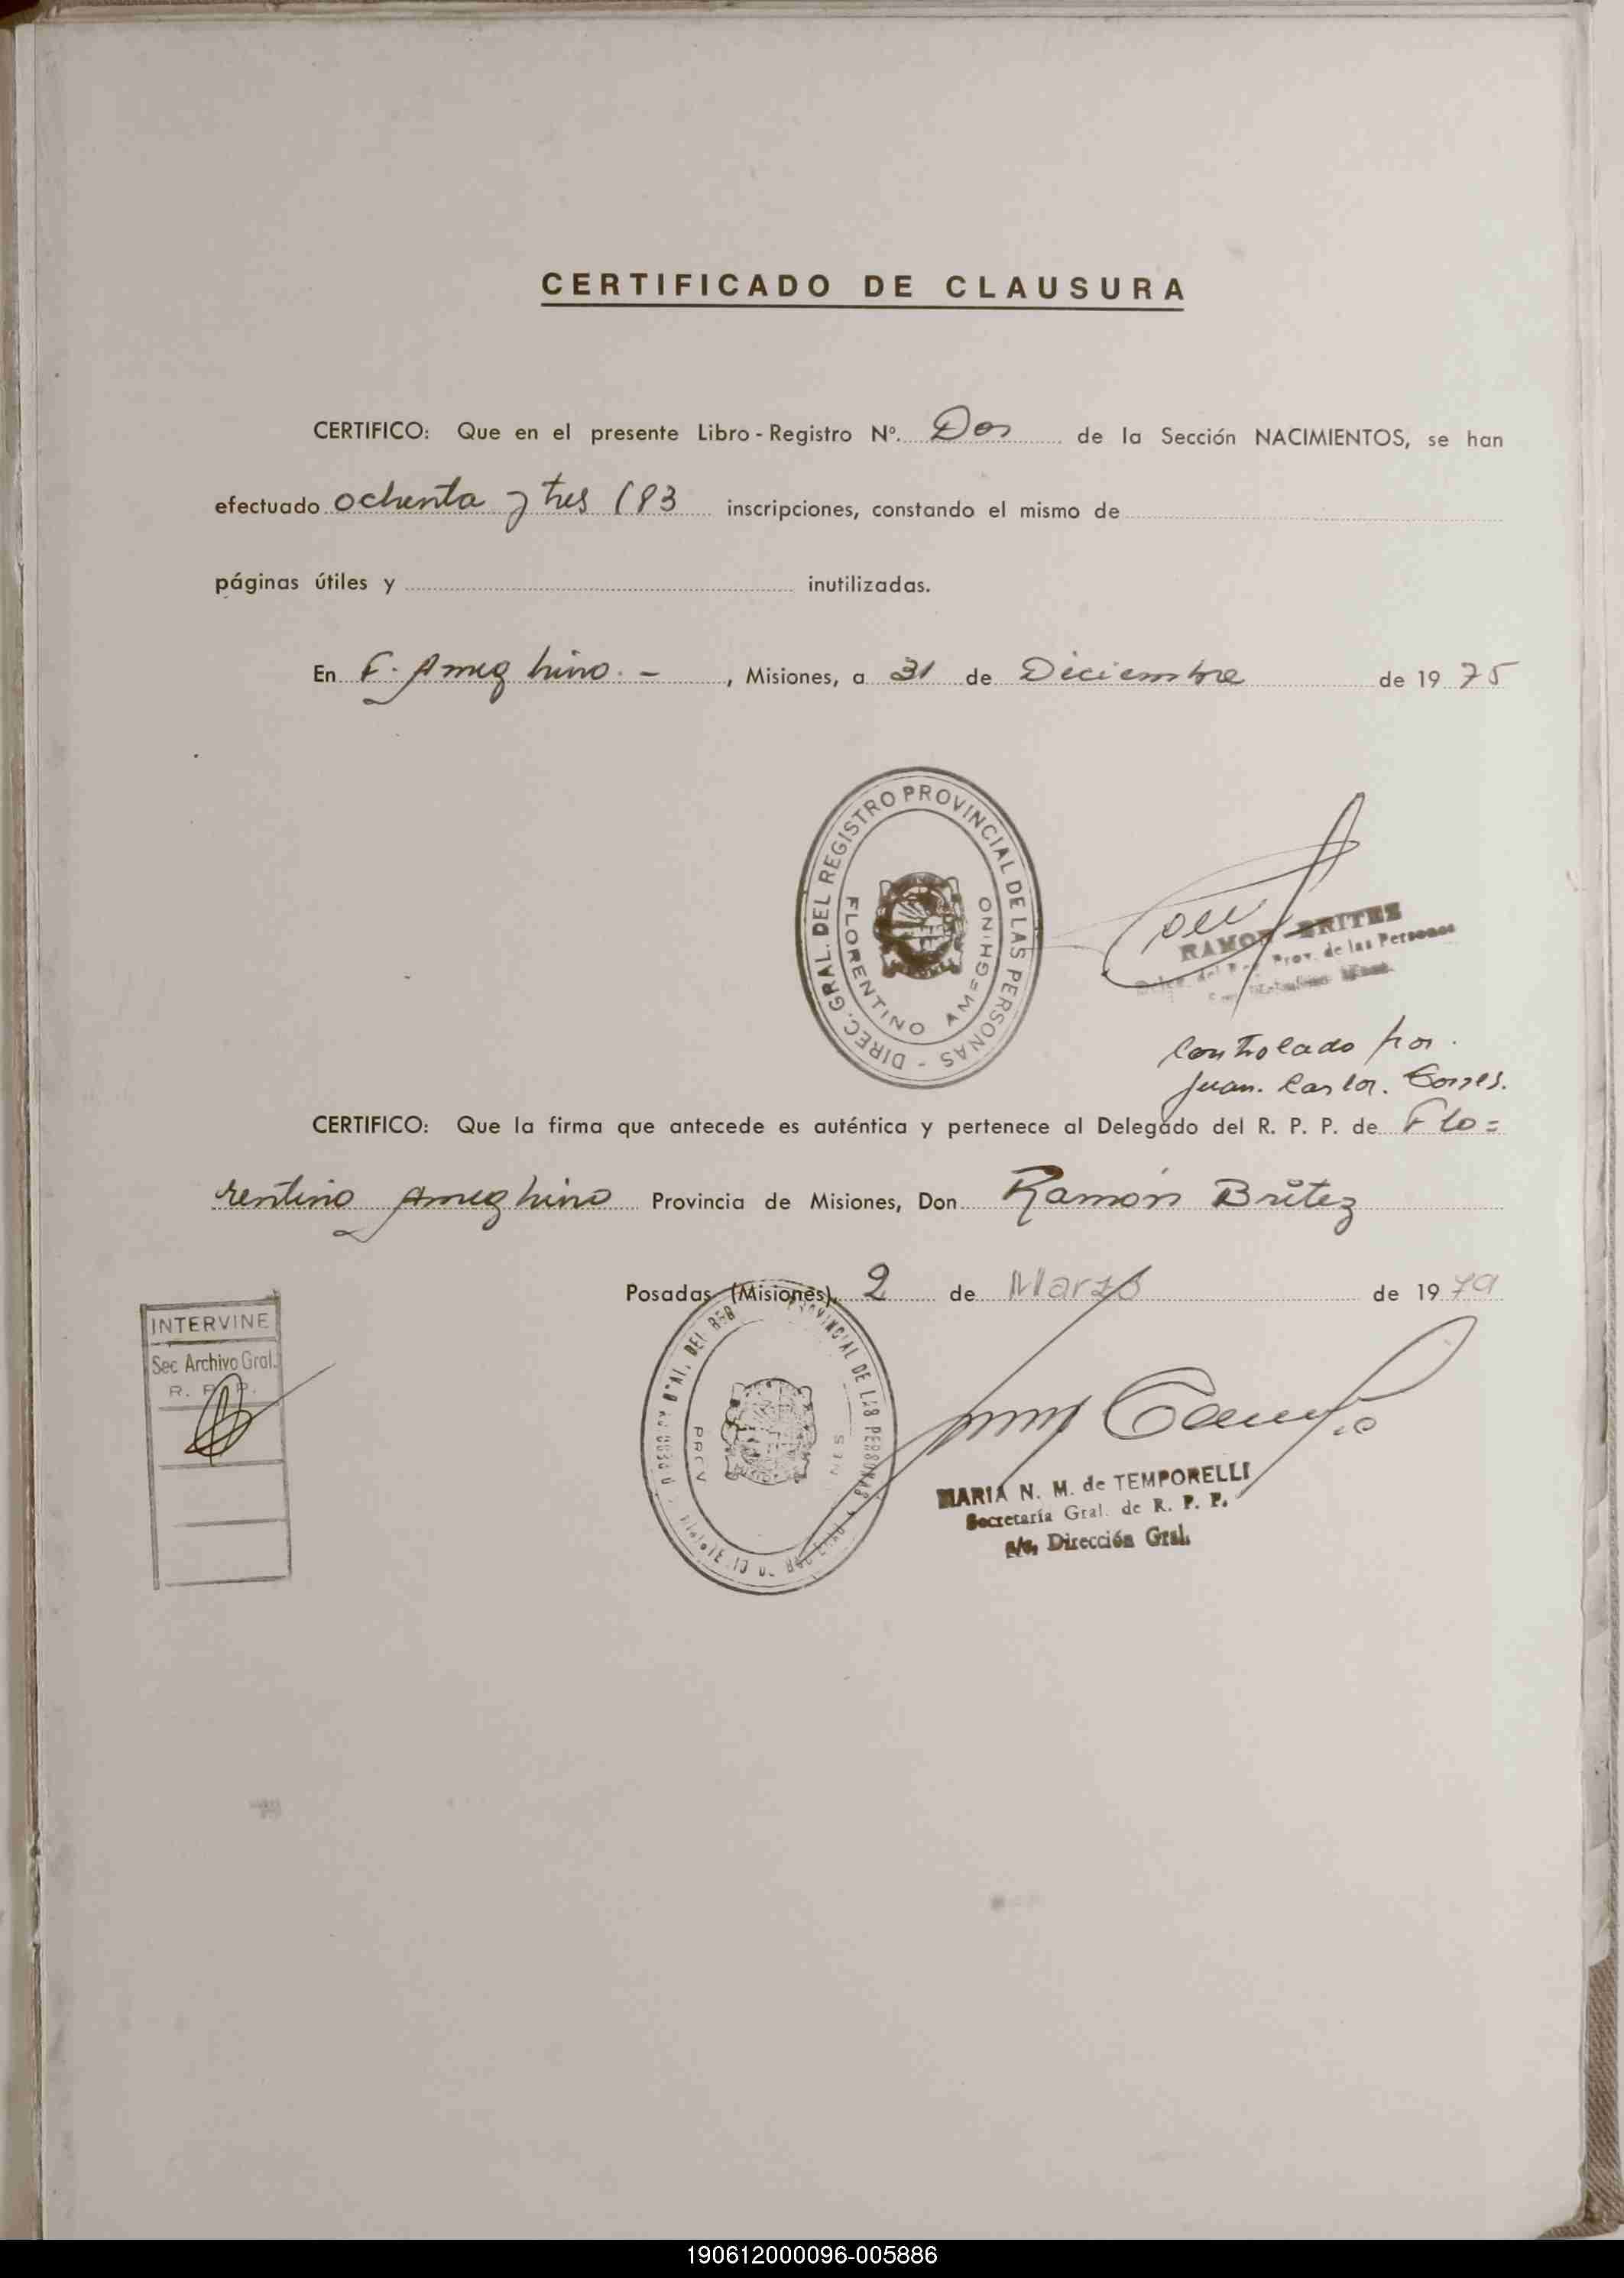 CERTIFICADO DE CLAUSURA
CERTIFICO: Que en el presente Libro - Registro Nº. Dos de la Sección NACIMIENTOS, se han
efectuado ochenta y tres (83 inscripciones, constando el mismo de
páginas útiles y inutilizadas.
En F. Ameghino. - , Misiones, a 31 de Diciembre de 1975
DIREC. GRAL. DEL REGISTRO PROVINCIAL DE LAS PERSONAS -
FLORENTINO AMEGHINO
RAMON BRITEZ
Prov. de las Personas
Controlado por.
Juan. Carlos. Torres.
CERTIFICO: Que la firma que antecede es auténtica y pertenece al Delegado del R. P. P. de Flo=
rentino Ameghino Provincia de Misiones, Don Ramón Britez
Posadas (Misiones), 2 de Marzo de 1979
INTERVINE
Sec Archivo Gral.
R. P. P.
PROVINCIAL DE LAS PERSONAS
MARIA N. M. de TEMPORELLI
Secretaría Gral. de R. P. P.
a/c. Dirección Gral.
190612000096-005886